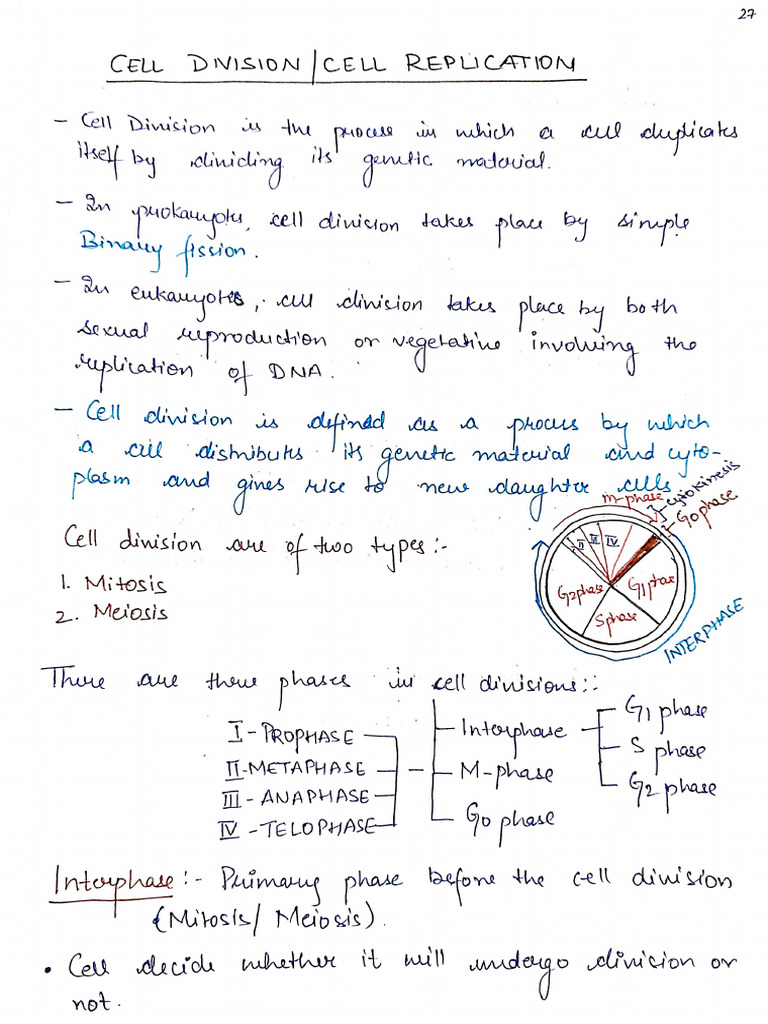 27
CELL DIVISION/CELL REPLICATION
- Cell Division is the process in which a cell duplicates
itself by dividing its genetic material.
- In prokaryotes, cell division takes place by simple
Binary fission.
- In eukaryotes, cell division takes place by both
sexual reproduction or vegetative involving the
replication of DNA.
- Cell division is defined as a process by which
a cell distributes its genetic material and cyto-
plasm and gives rise to new daughter cells
Cell division are of two types:-
1. Mitosis
2. Meiosis
m-phase
cytokinesis
G0 phase
II III IV
G2 phase
G1 phase
S phase
INTERPHASE
There are three phases in cell divisions::
I - PROPHASE
II - METAPHASE
III - ANAPHASE
IV - TELOPHASE
Interphase
M-phase
G0 phase
G1 phase
S phase
G2 phase
Interphase:- Primary phase before the cell division
(Mitosis/ Meiosis).
• Cell decide whether it will undergo division or
not.